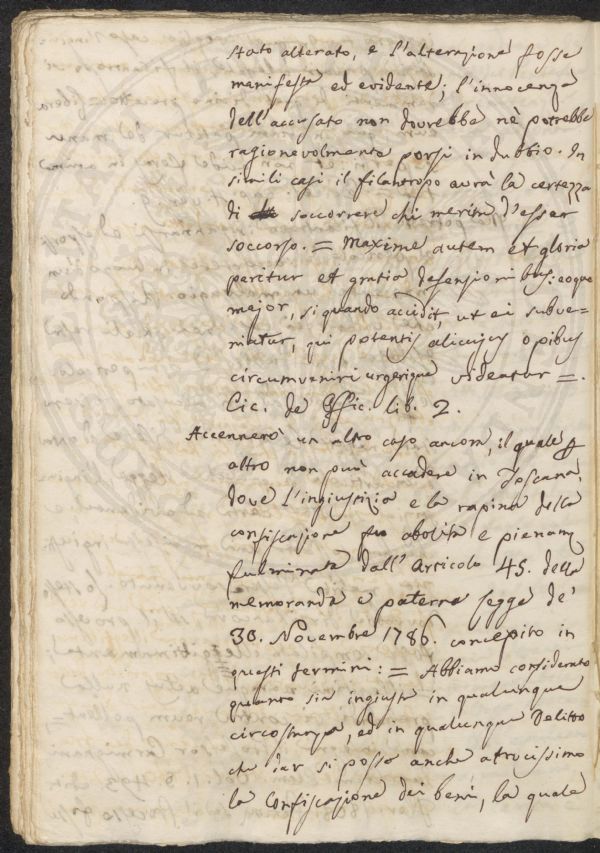 stato alterato, e l'alterazione fosse
manifesta ed evidente; l'innocenza
dell'accusato non dovrebbe nè potrebbe
ragionevolmente porsi in dubbio. In
simili casi il filantropo avrà la certezza
di soccorrere chi merita d'esser
soccorso. = Maxime autem et gloria
paritur et gratia defensionibus: eoque
major, si quando accidit, ut ei subve=
niatur, qui potentis alicujus opibus
circumveniri urgerique videatur =.
Cic. de Offic. lib. 2.
Accennerò un altro caso ancora, il quale p
altro non può accadere in Toscana,
dove l'ingiustizia e la rapina della
confiscazione fu abolita e pienam
fulminata dall'Articolo 45. della
memoranda e paterna legge de'
30. Novembre 1786. concepito in
questi termini: = Abbiamo considerato
quanto sia ingiusta in qualunque
circostanza, ed in qualunque Delitto
che dar si possa anche atrocissimo
la Confiscazione dei beni, la quale